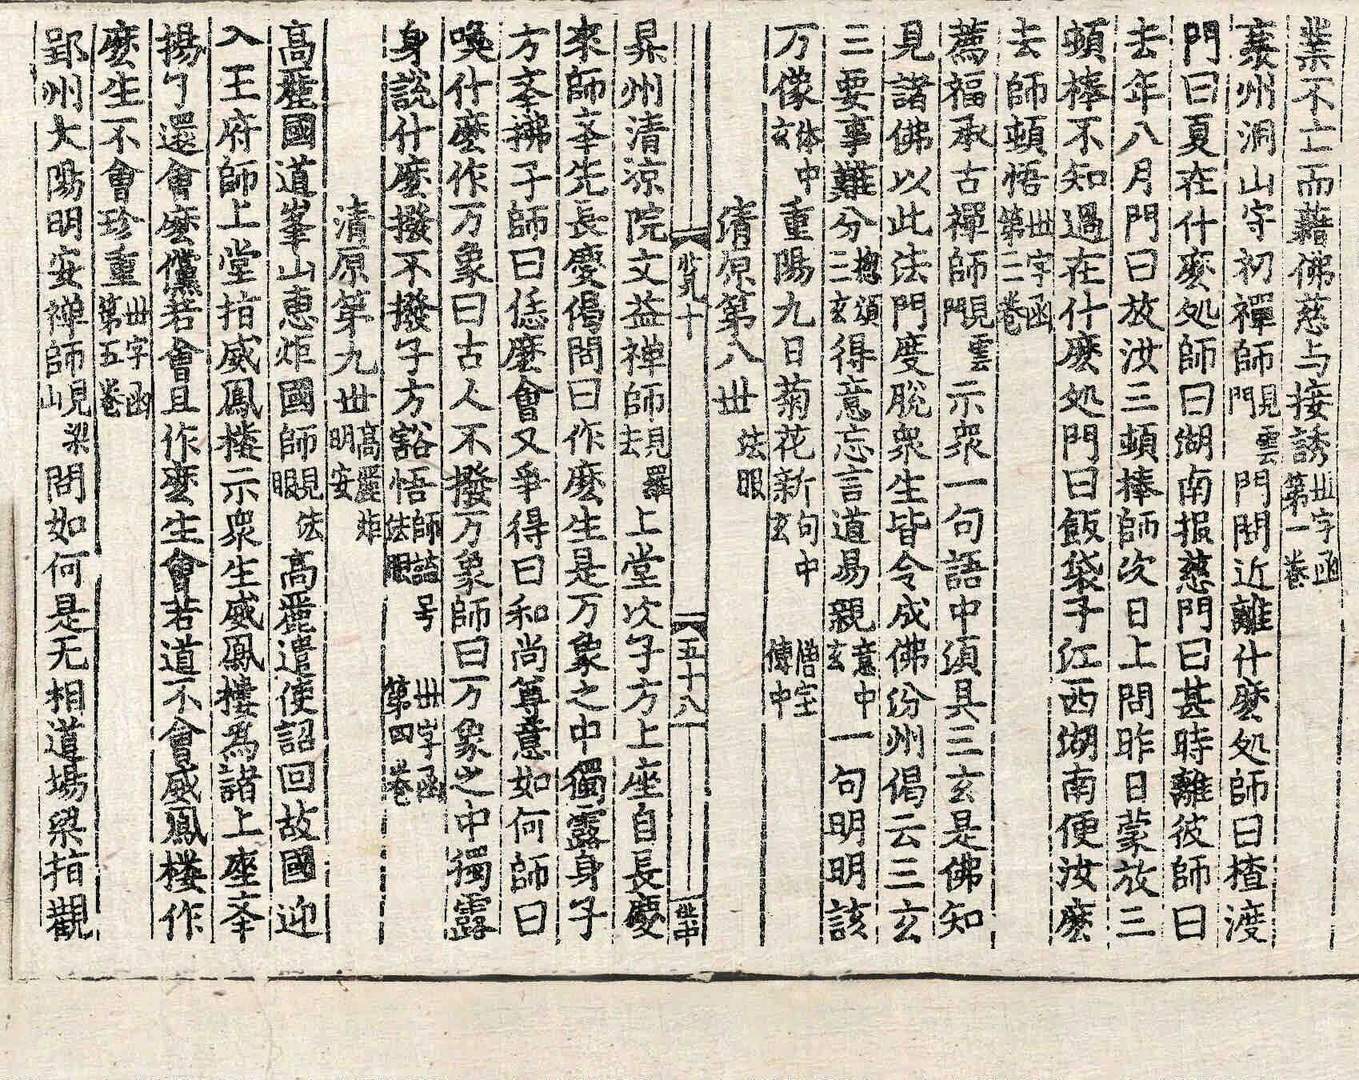 業不亡而藉佛慈与接誘 世字函第一卷
襄州洞山守初禪師 見雲門 門問近離什麽処師曰楂渡
門曰夏在什麽処師曰湖南報慈門曰甚時離彼師曰
去年八月門曰放汝三頓棒師次日上問昨日蒙放三
頓棒不知過在什麽処門曰飯袋子江西湖南便汝麽
去師頓悟 世字函第二卷
薦福承古禪師 見雲門 示衆一句語中須具三玄是佛知
見諸佛以此法門度脫衆生皆令成佛汾州偈云三玄
三要事難分 揔頌三玄 得意忘言道易親 意中玄 一句明明該
万像 体中玄 重陽九日菊花新 句中玄 僧宝傳中
清原第八世 法眼
昇州清凉院文益禅師 見羅 上堂次子方上座自長慶
來師夆先長慶偈問曰作麽生是万象之中獨露身子
方夆拂子師曰恁麽會又爭得曰和尚尊意如何師曰
喚什麽作万象曰古人不撥万象師曰万象之中獨露
身說什麽撥不撥子方豁悟 師諡号法眼 世字函第四卷
清原第九世 高麗炬 明安
高麗國道峯山惠炬國師 見法眼 高麗遣使詔回故國迎
入王府師上堂拍威鳳樓示衆生威鳳樓爲諸上座夆
揚了還會麽儻若會且作麽生會若道不會威鳳樓作
麽生不會珍重 世字函第五卷
郢州大陽明安禅師 見梁山 問如何是无相道場梁指觀